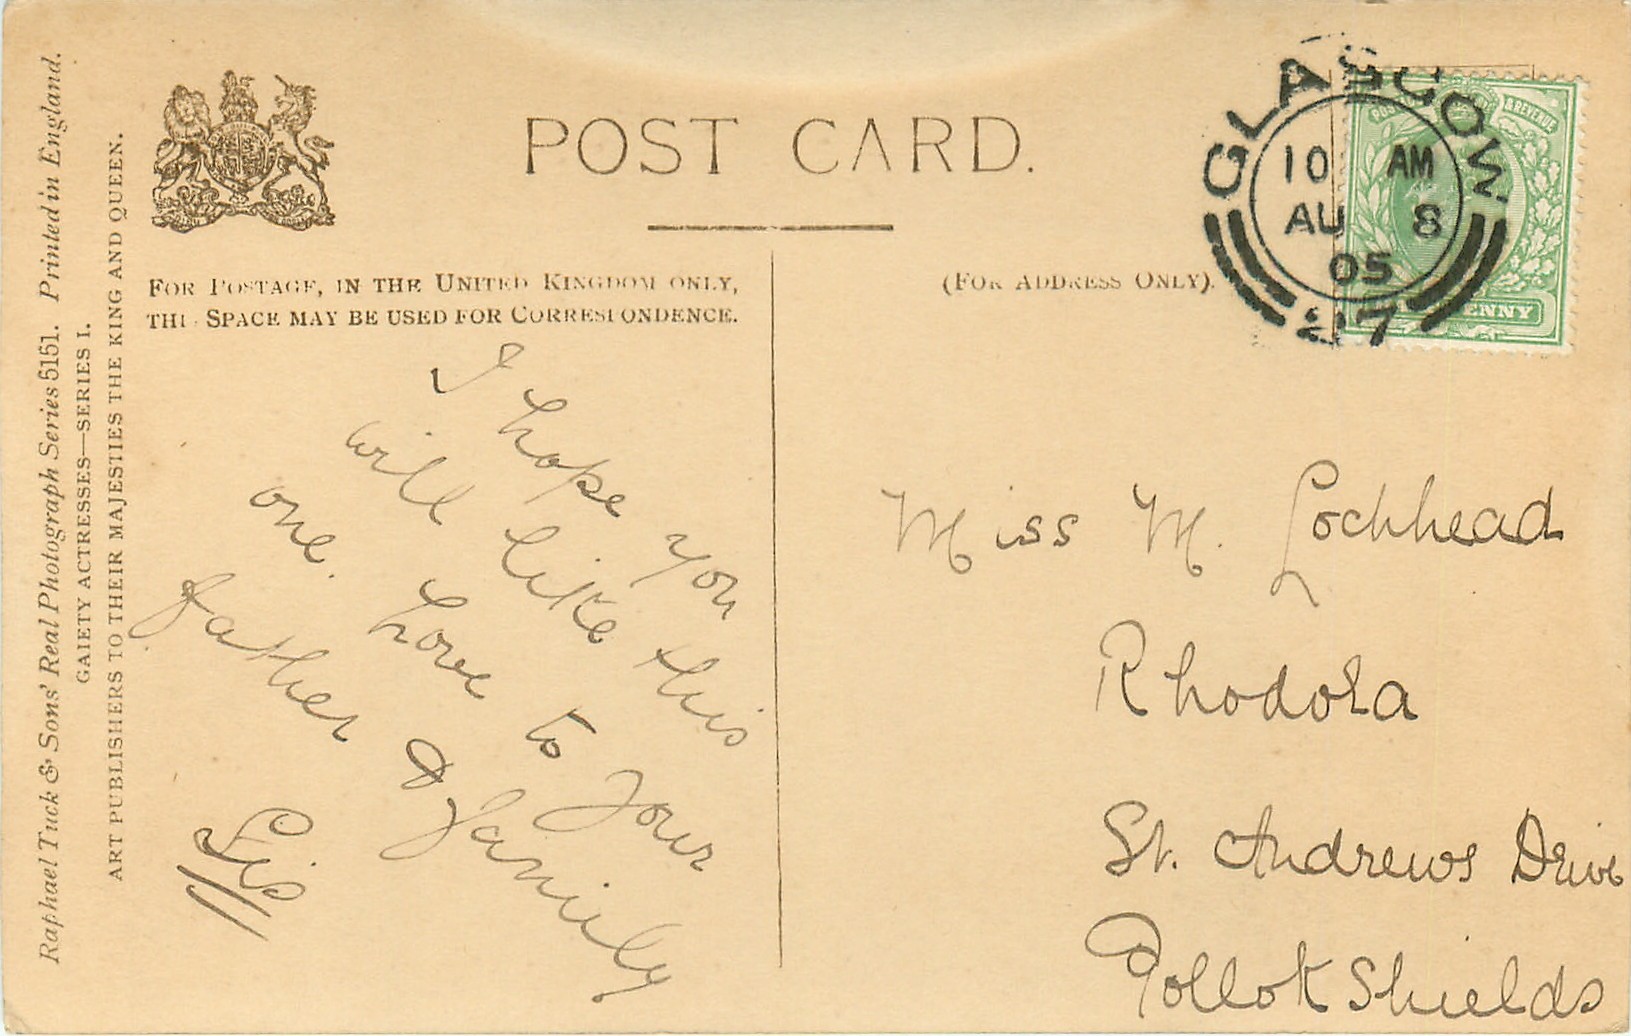 Raphael Tuck & Sons' Real Photograph Series 5151. Printed in England.
GAIETY ACTRESSES—SERIES I.
ART PUBLISHERS TO THEIR MAJESTIES THE KING AND QUEEN.
POST CARD.
FOR POSTAGE, IN THE UNITED KINGDOM ONLY,
THIS SPACE MAY BE USED FOR CORRESPONDENCE.
(FOR ADDRESS ONLY).
GLASGOW
10 AM
AU 8
05
POSTAGE & REVENUE
PENNY
I hope you
will like this
one. Love to your
father & family
Lis
Miss M. Lochhead
Rhodora
St. Andrews Drive
Pollok Shields